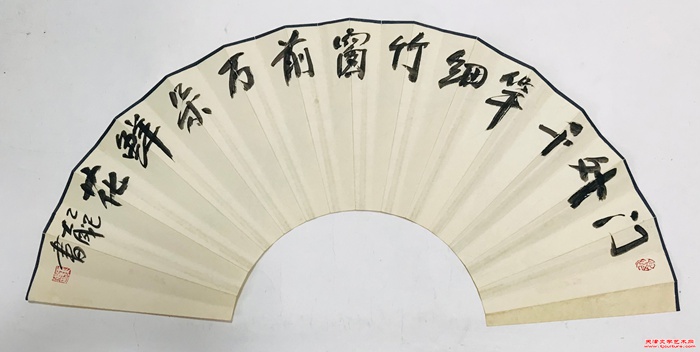 门外千竿细竹窗前万朵鲜花
天津文学艺术网